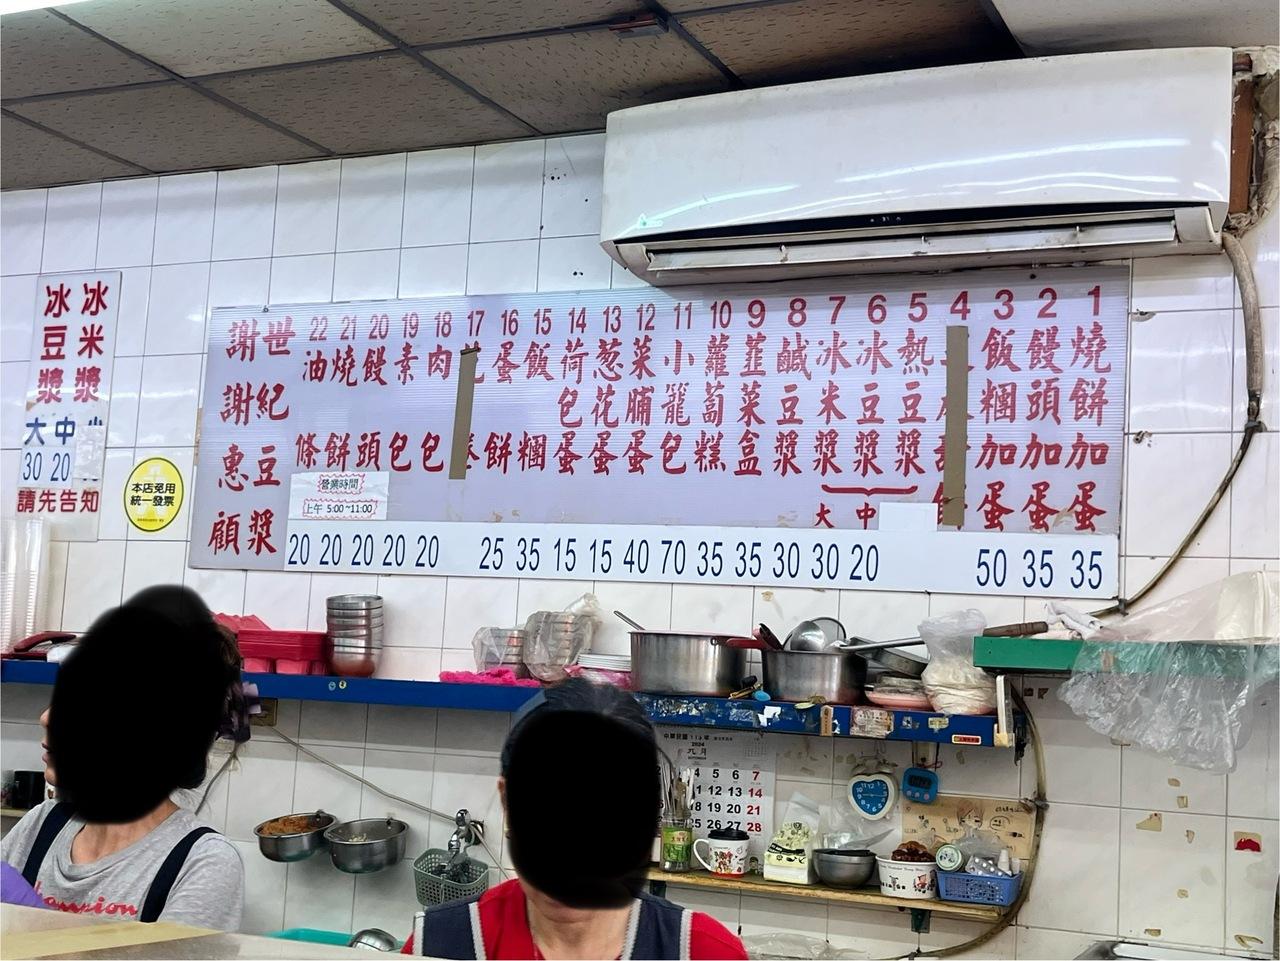 冰米漿
冰豆漿
大 中 小
30 20
請先告知
本店免用
統一發票
1 燒餅加蛋
2 饅頭加蛋
3 飯糰加蛋
4
5 熱豆漿
6 冰豆漿
7 冰米漿
大 中
8 鹹豆漿
9 韮菜盒
10 蘿蔔糕
11 小籠包
12 菜脯蛋
13 葱花蛋
14 荷包蛋
15 飯糰
16 蛋餅
17
18 肉包
19 素包
20 饅頭
21 燒餅
22 油條
世紀豆漿
謝謝惠顧
營業時間
上午 5:00~11:00
20 20 20 20 20 25 35 15 15 40 70 35 35 30 30 20 50 35 35
2024
4 5 6 7
11 12 13 14
18 19 20 21
25 26 27 28
Champion